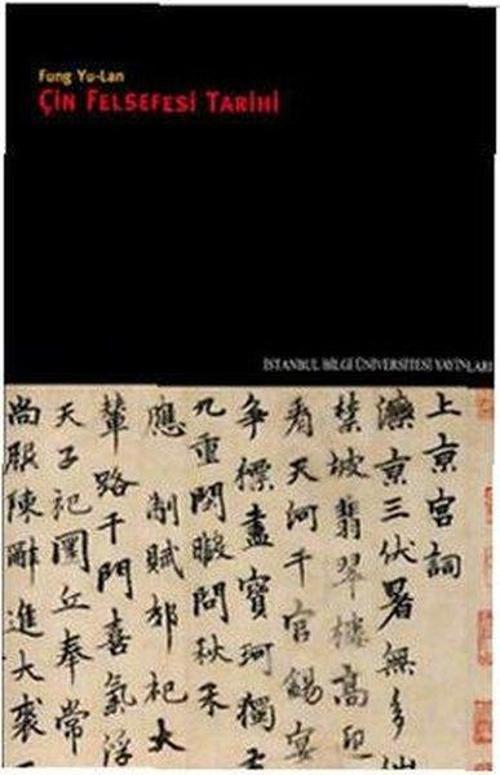 Fung Yu-Lan
ÇİN FELSEFESİ TARİHİ
İSTANBUL BİLGİ ÜNİVERSİTESİ YAYINLARI
上亰宮詞
灤亰三伏暑無多
禁坡翡翠樓高
看天河千官錫宴
争標盡寶珂獨
九重閑暇問秋禾
應制賦郊祀大
輦路千門喜氣浮
天子祀圜丘奉常
尚服陳辭進大裘